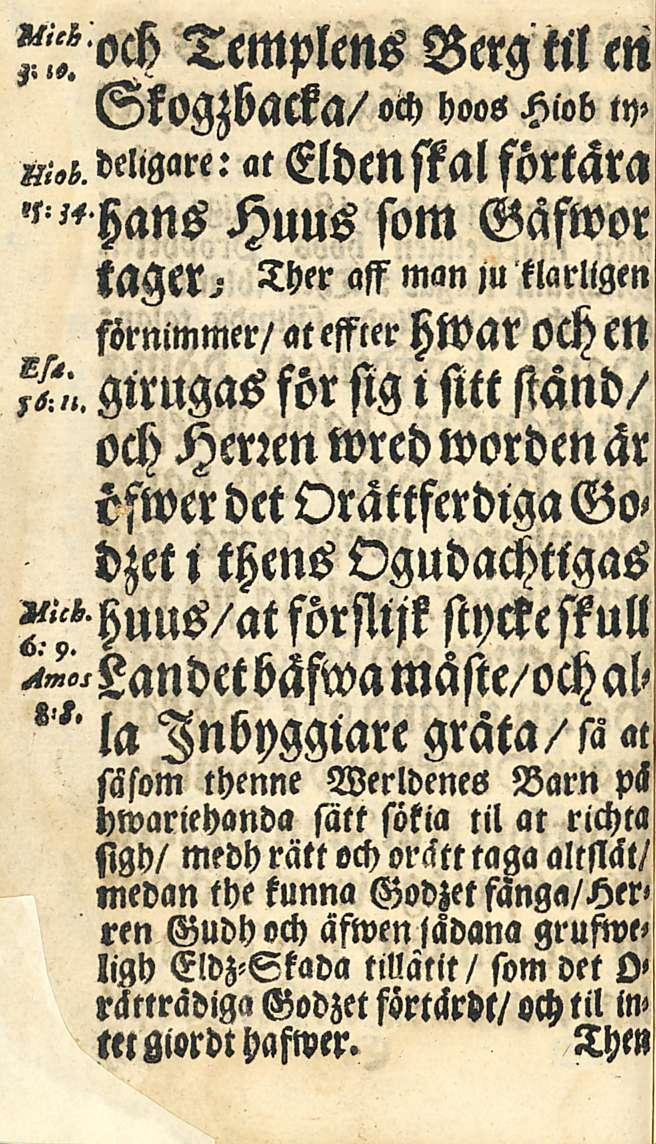 Mich.
3: 10.
och Templens Berg til en
Skogzbacka/ och hoos Hiob ty⸗
Hiob.
15: 34.
deligare: at Elden skal förtära
hans Huus som Gåfwor
tager; Ther aff man ju klarligen
förnimmer/ at effter hwar och en
Esa.
56: 11.
girugas för sig i sitt stånd/
och Herren wred worden är
öfwer det Orättferdiga Go⸗
dzet i thens Ogudachtigas
Mich.
6: 9.
huus/ at förslijk stycke skull
Amos
8: 8.
Landet bäfwa måste/ och al⸗
la Inbyggiare gråta/ så at
såsom thenne Werldenes Barn på
hwariehanda sätt sökia til at richta
sigh/ medh rätt och orätt taga altslät/
medan the kunna Godzet fånga/ Her⸗
ren Gudh och äfwen sådana grufwe⸗
ligh Eldz⸗Skada tillåtit/ som det O⸗
rättrådiga Godzet förtärdt/ och til in⸗
tet giordt hafwer.
Then